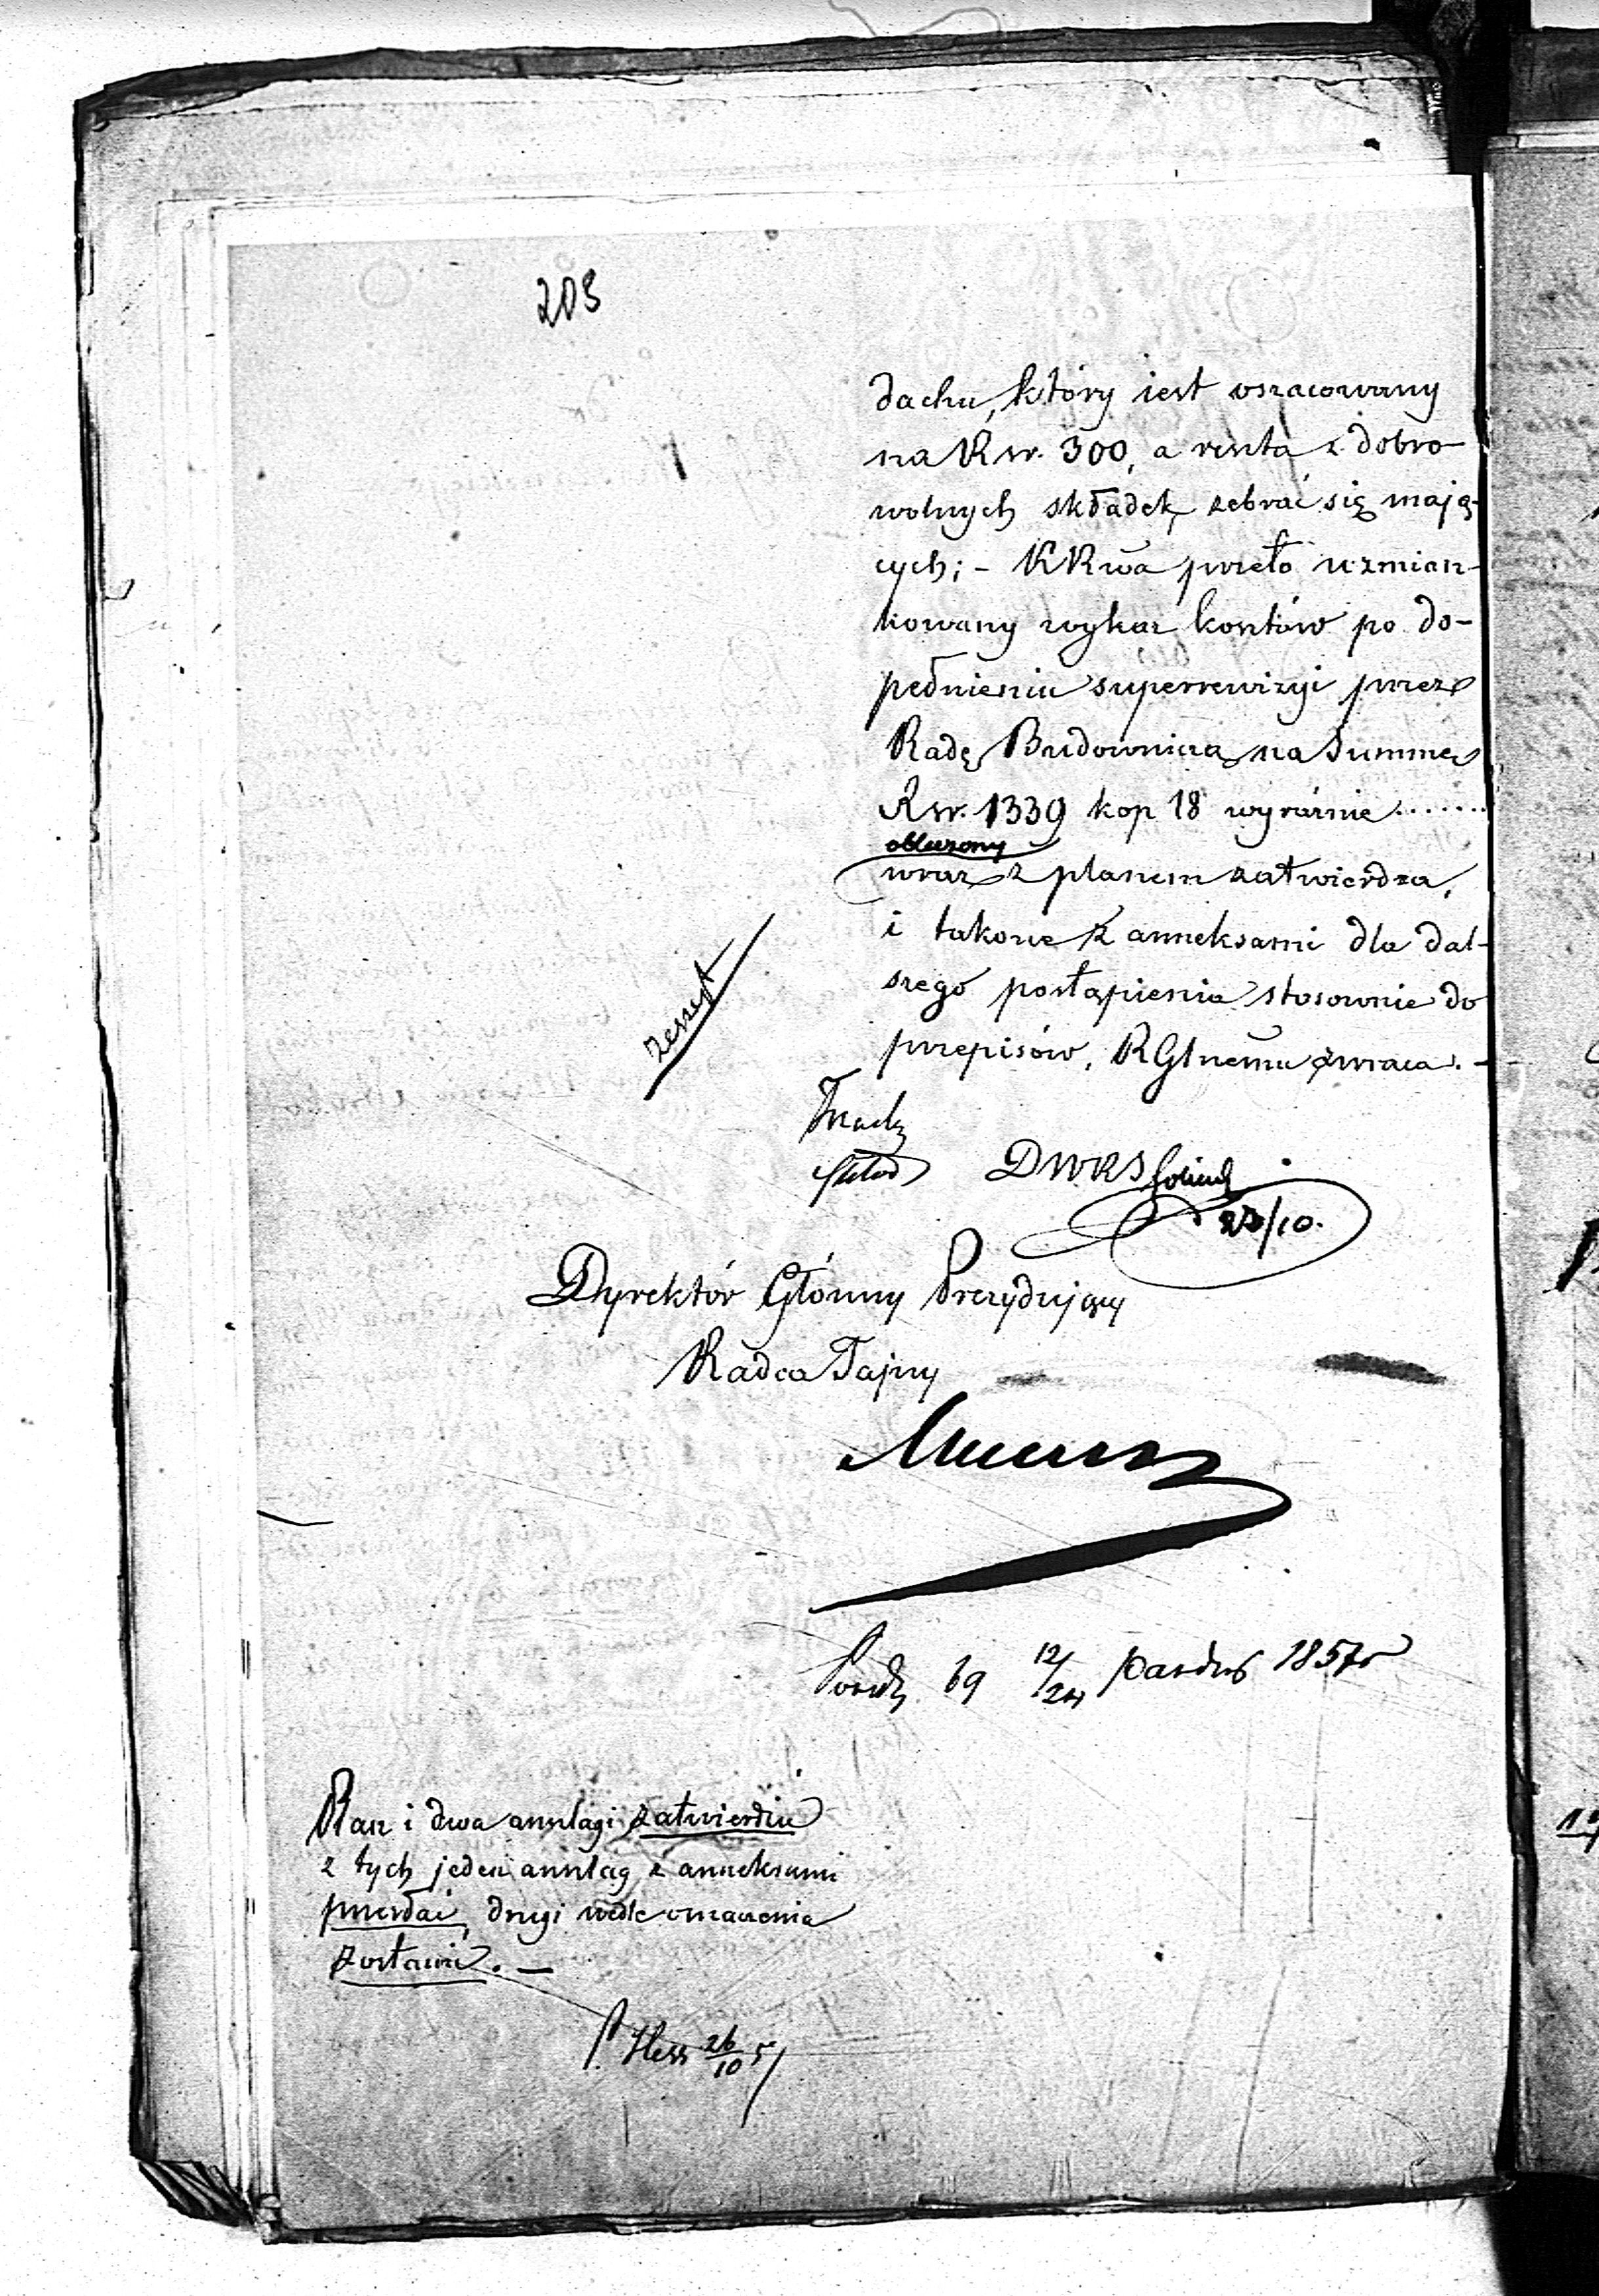 203
dachu, który iest oszacowany
na Rsr. 300, a reszta z dobro-
wolnych składek zebrać się mają-
cych; - KRwa przeto wzmian-
kowany wykaz kosztów po do-
pełnieniu superrewizyi przez
Radę Budowniczą na Summę
Rsr. 1339 kop 18 wyraźnie .......
obliczony
wraz z planem zatwierdza,
i takowe z anneksami dla dal-
szego postąpienia stosownie do
przepisów, RGlnemu zwraca. -
zeszyt
DWRS
23/10.
Dyrektór Główny Prezydujący
Radca Tajny
69 12/24 Paźdz 1857r
Plan i dwa annszlagi zatwierdzić
z tych jeden annszlag z anneksami
przesłać, drugi wedle oznaczenia
zostawić. -
Hess 26/10 57